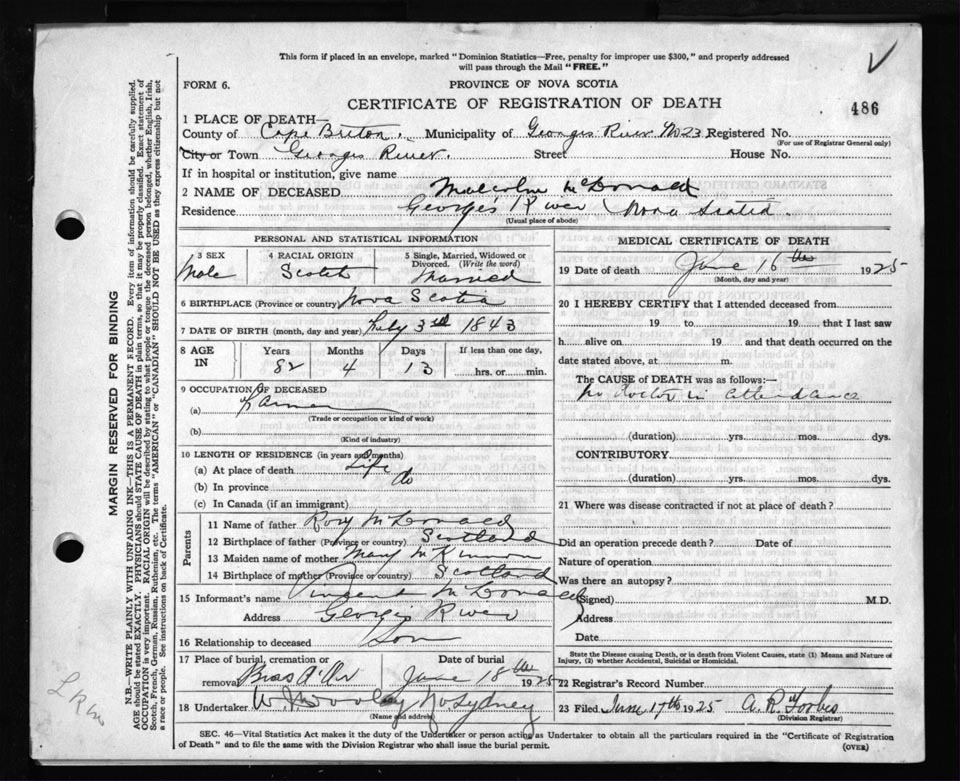 This form if placed in an envelope, marked "Dominion Statistics—Free, penalty for improper use $300," and properly addressed
will pass through the Mail "FREE."
FORM 6.
PROVINCE OF NOVA SCOTIA
CERTIFICATE OF REGISTRATION OF DEATH
486
1 PLACE OF DEATH—
County of Cape Breton. Municipality of Georges River No 23 Registered No.
(For use of Registrar General only)
City or Town Georges River. Street House No.
If in hospital or institution, give name
2 NAME OF DECEASED Malcolm McDonald
Residence George's River Nova Scotia.
(Usual place of abode)
PERSONAL AND STATISTICAL INFORMATION
3 SEX
Male
4 RACIAL ORIGIN
Scotch
5 Single, Married, Widowed or
Divorced. (Write the word)
Married
6 BIRTHPLACE (Province or country) Nova Scotia
7 DATE OF BIRTH (month, day and year) 3rd 1843
8 AGE
IN
Years Months Days If less than one day,
82 4 13 hrs. or min.
9 OCCUPATION OF DECEASED
(a) Farmer
(Trade or occupation or kind of work)
(b)
(Kind of industry)
10 LENGTH OF RESIDENCE (in years and months)
(a) At place of death Life
(b) In province do
(c) In Canada (if an immigrant)
Parents
11 Name of father Rory McDonald
12 Birthplace of father (Province or country) Scotland
13 Maiden name of mother Mary McKinnon
14 Birthplace of mother (Province or country) Scotland
15 Informant's name Vincent McDonald
Address Georges River
16 Relationship to deceased Son
17 Place of burial, cremation or
removal Bras d'Or
Date of burial
June 18th 1925
18 Undertaker W. J. Dooley No Sydney
(Name and address)
MEDICAL CERTIFICATE OF DEATH
19 Date of death June 16th 1925
(Month, day and year)
20 I HEREBY CERTIFY that I attended deceased from
19 to 19 that I last saw
h alive on 19 and that death occurred on the
date stated above, at m.
The CAUSE of DEATH was as follows:—
No doctor in attendance
(duration) yrs. mos. dys.
CONTRIBUTORY.
(duration) yrs. mos. dys.
21 Where was disease contracted if not at place of death?
Did an operation precede death? Date of
Nature of operation
Was there an autopsy?
(Signed) M.D.
Address
Date
State the Disease causing Death, or in death from Violent Causes, state (1) Means and Nature of
Injury, (2) whether Accidental, Suicidal or Homicidal.
22 Registrar's Record Number
23 Filed June 17th 1925 A. R. Forbes
(Division Registrar)
SEC. 46—Vital Statistics Act makes it the duty of the Undertaker or person acting as Undertaker to obtain all the particulars required in the "Certificate of Registration
of Death" and to file the same with the Division Registrar who shall issue the burial permit.
(OVER)
MARGIN RESERVED FOR BINDING
N.B.—WRITE PLAINLY WITH UNFADING INK—THIS IS A PERMANENT RECORD. Every item of information should be carefully supplied.
AGE should be stated EXACTLY. PHYSICIANS should STATE CAUSE OF DEATH in plain terms, so that it may be properly classified. Exact statement of
OCCUPATION is very important. RACIAL ORIGIN will be described by stating to what people or tongue the deceased person belonged, whether English, Irish,
Scotch, French, German, Russian, Ruthenian, etc. The terms "AMERICAN" or "CANADIAN" SHOULD NOT BE USED as they express citizenship but not
a race or people. See instructions on back of Certificate.